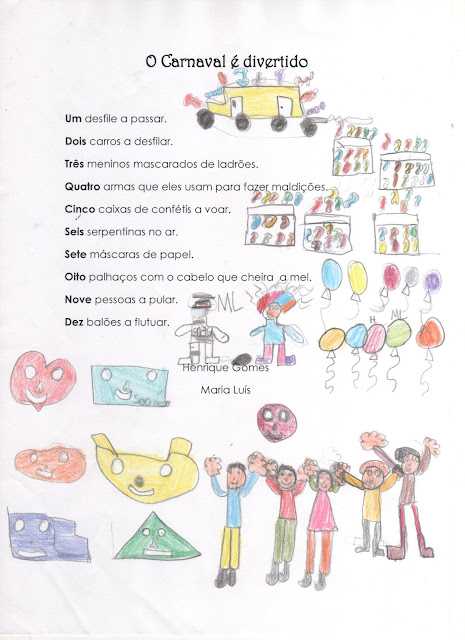 O Carnaval é divertido
Um desfile a passar.
Dois carros a desfilar.
Três meninos mascarados de ladrões.
Quatro armas que eles usam para fazer maldições.
Cinco caixas de confétis a voar.
Seis serpentinas no ar.
Sete máscaras de papel.
Oito palhaços com o cabelo que cheira a mel.
Nove pessoas a pular.
Dez balões a flutuar.
H ML
ML
Henrique Gomes
Maria Luís